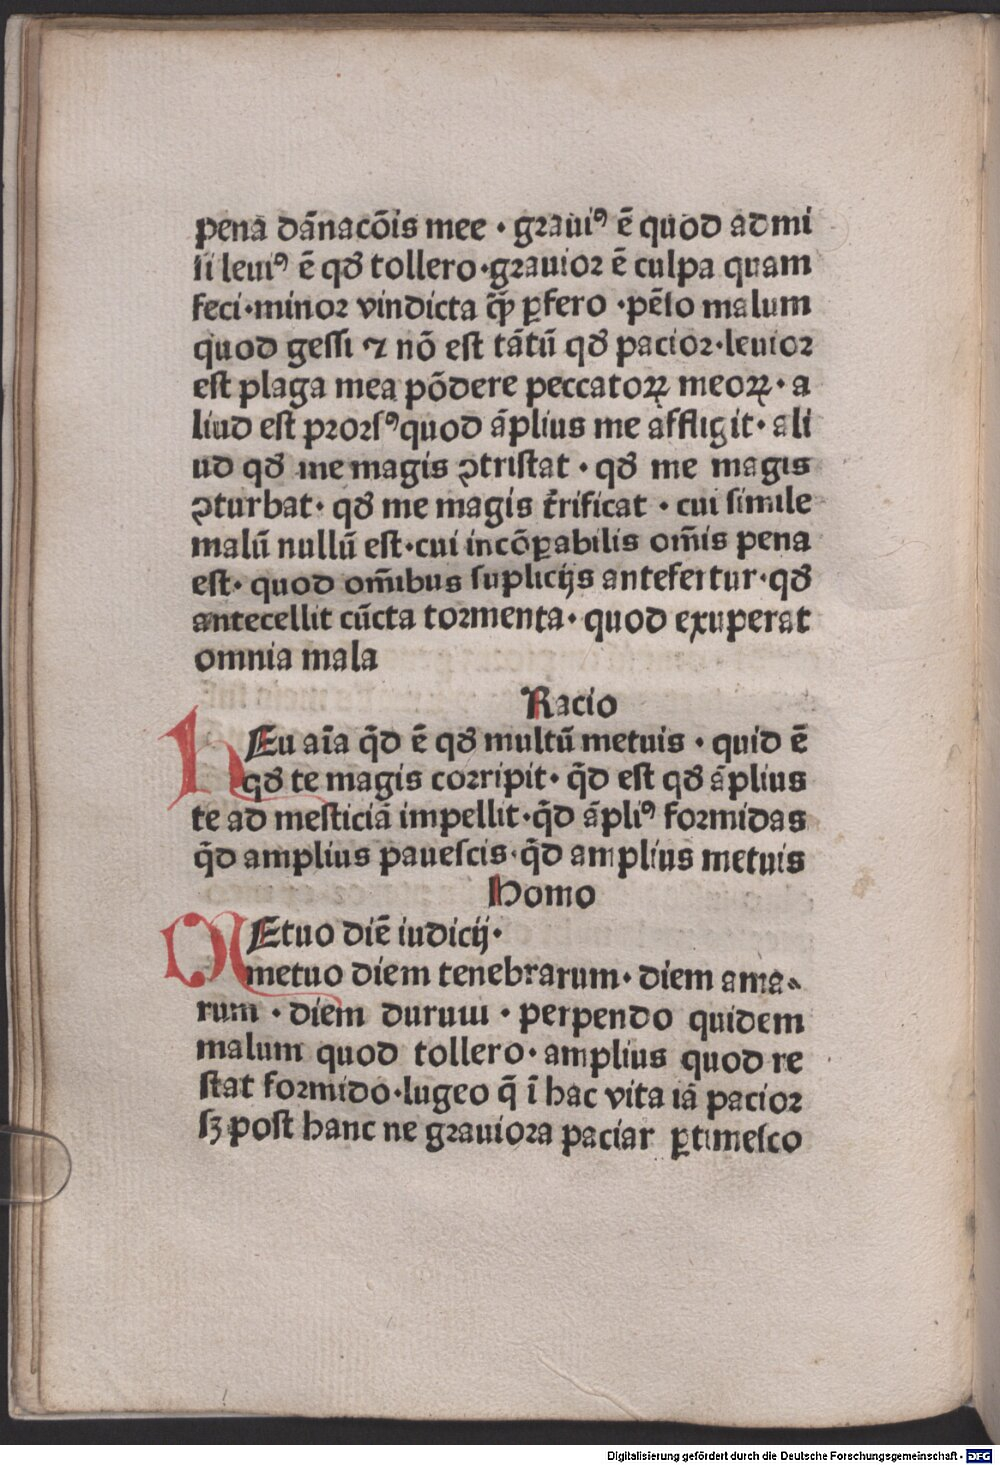 pena dãnacõis mee · grauiꝰ ẽ quod admi
ſi leuiꝰ ẽ qđ tollero · grauior ẽ culpa quam
feci · minor vindicta q̃ꝫ ꝑfero · pẽſo malum
quod geſſi ⁊ nõ eſt tãtũ qđ pacior · leuior
eſt plaga mea põdere peccatoꝝ meoꝝ · a
liud eſt prorſꝰ quod ãplius me affligit · ali
ud qđ me magis ꝯtriſtat · qđ me magis
ꝯturbat · qđ me magis t̃rificat · cui ſimile
malũ nullũ eſt · cui incõꝑabilis om̃is pena
eſt · quod om̃ibus ſuplicijs antefertur · qđ
antecellit cũcta tormenta · quod exuperat
omnia mala
Racio
HEu aĩa q̃d ẽ qđ multũ metuis · quid ẽ
qđ te magis corripit · q̃d eſt qđ ãplius
te ad meſticiã impellit · q̃d ãpliꝰ formidas
q̃d amplius paueſcis · q̃d amplius metuis
Homo
MEtuo diẽ iudicij ·
metuo diem tenebrarum · diem ama⸗
rum · diem durum · perpendo quidem
malum quod tollero · amplius quod re
ſtat formido · lugeo q̃ ĩ hac vita iã pacior
ſꝫ poſt hanc ne grauiora paciar ꝑtimeſco
Digitalisierung gefördert durch die Deutsche Forschungsgemeinschaft · DFG